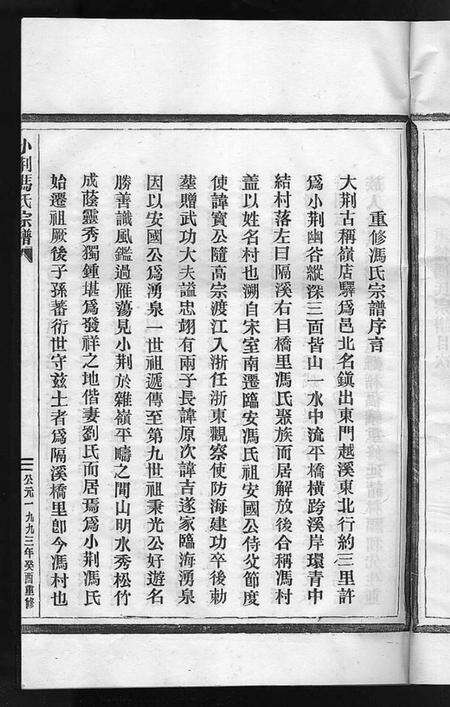 重修馮氏宗譜序言
大荆古稱嶺店驛爲邑北名鎭出東門越溪東北行約三里許
爲小荆幽谷縱深三面皆山一水中流平橋橫跨溪岸環青中
結村落左曰隔溪右曰橋里馮氏聚族而居解放後合稱馮村
蓋以姓名村也溯自宋室南遷臨安馮氏祖安國公侍父節度
使諱實公隨高宗渡江入浙任浙東觀察使防海建功卒後勅
塟贈武功大夫謚忠翊有兩子長諱原次諱吉遂家臨海湧泉
因以安國公爲湧泉一世祖遞傳至第九世祖秉光公好遊名
勝善識風鑑過雁蕩見小荆於雜嶺平疇之間山明水秀松竹
成蔭靈秀獨鍾堪爲發祥之地偕妻劉氏而居焉爲小荆馮氏
始遷祖厥後子孫蕃衍世守兹土者爲隔溪橋里卽今馮村也
小荆馮氏宗譜
公元一九九三年癸酉重修